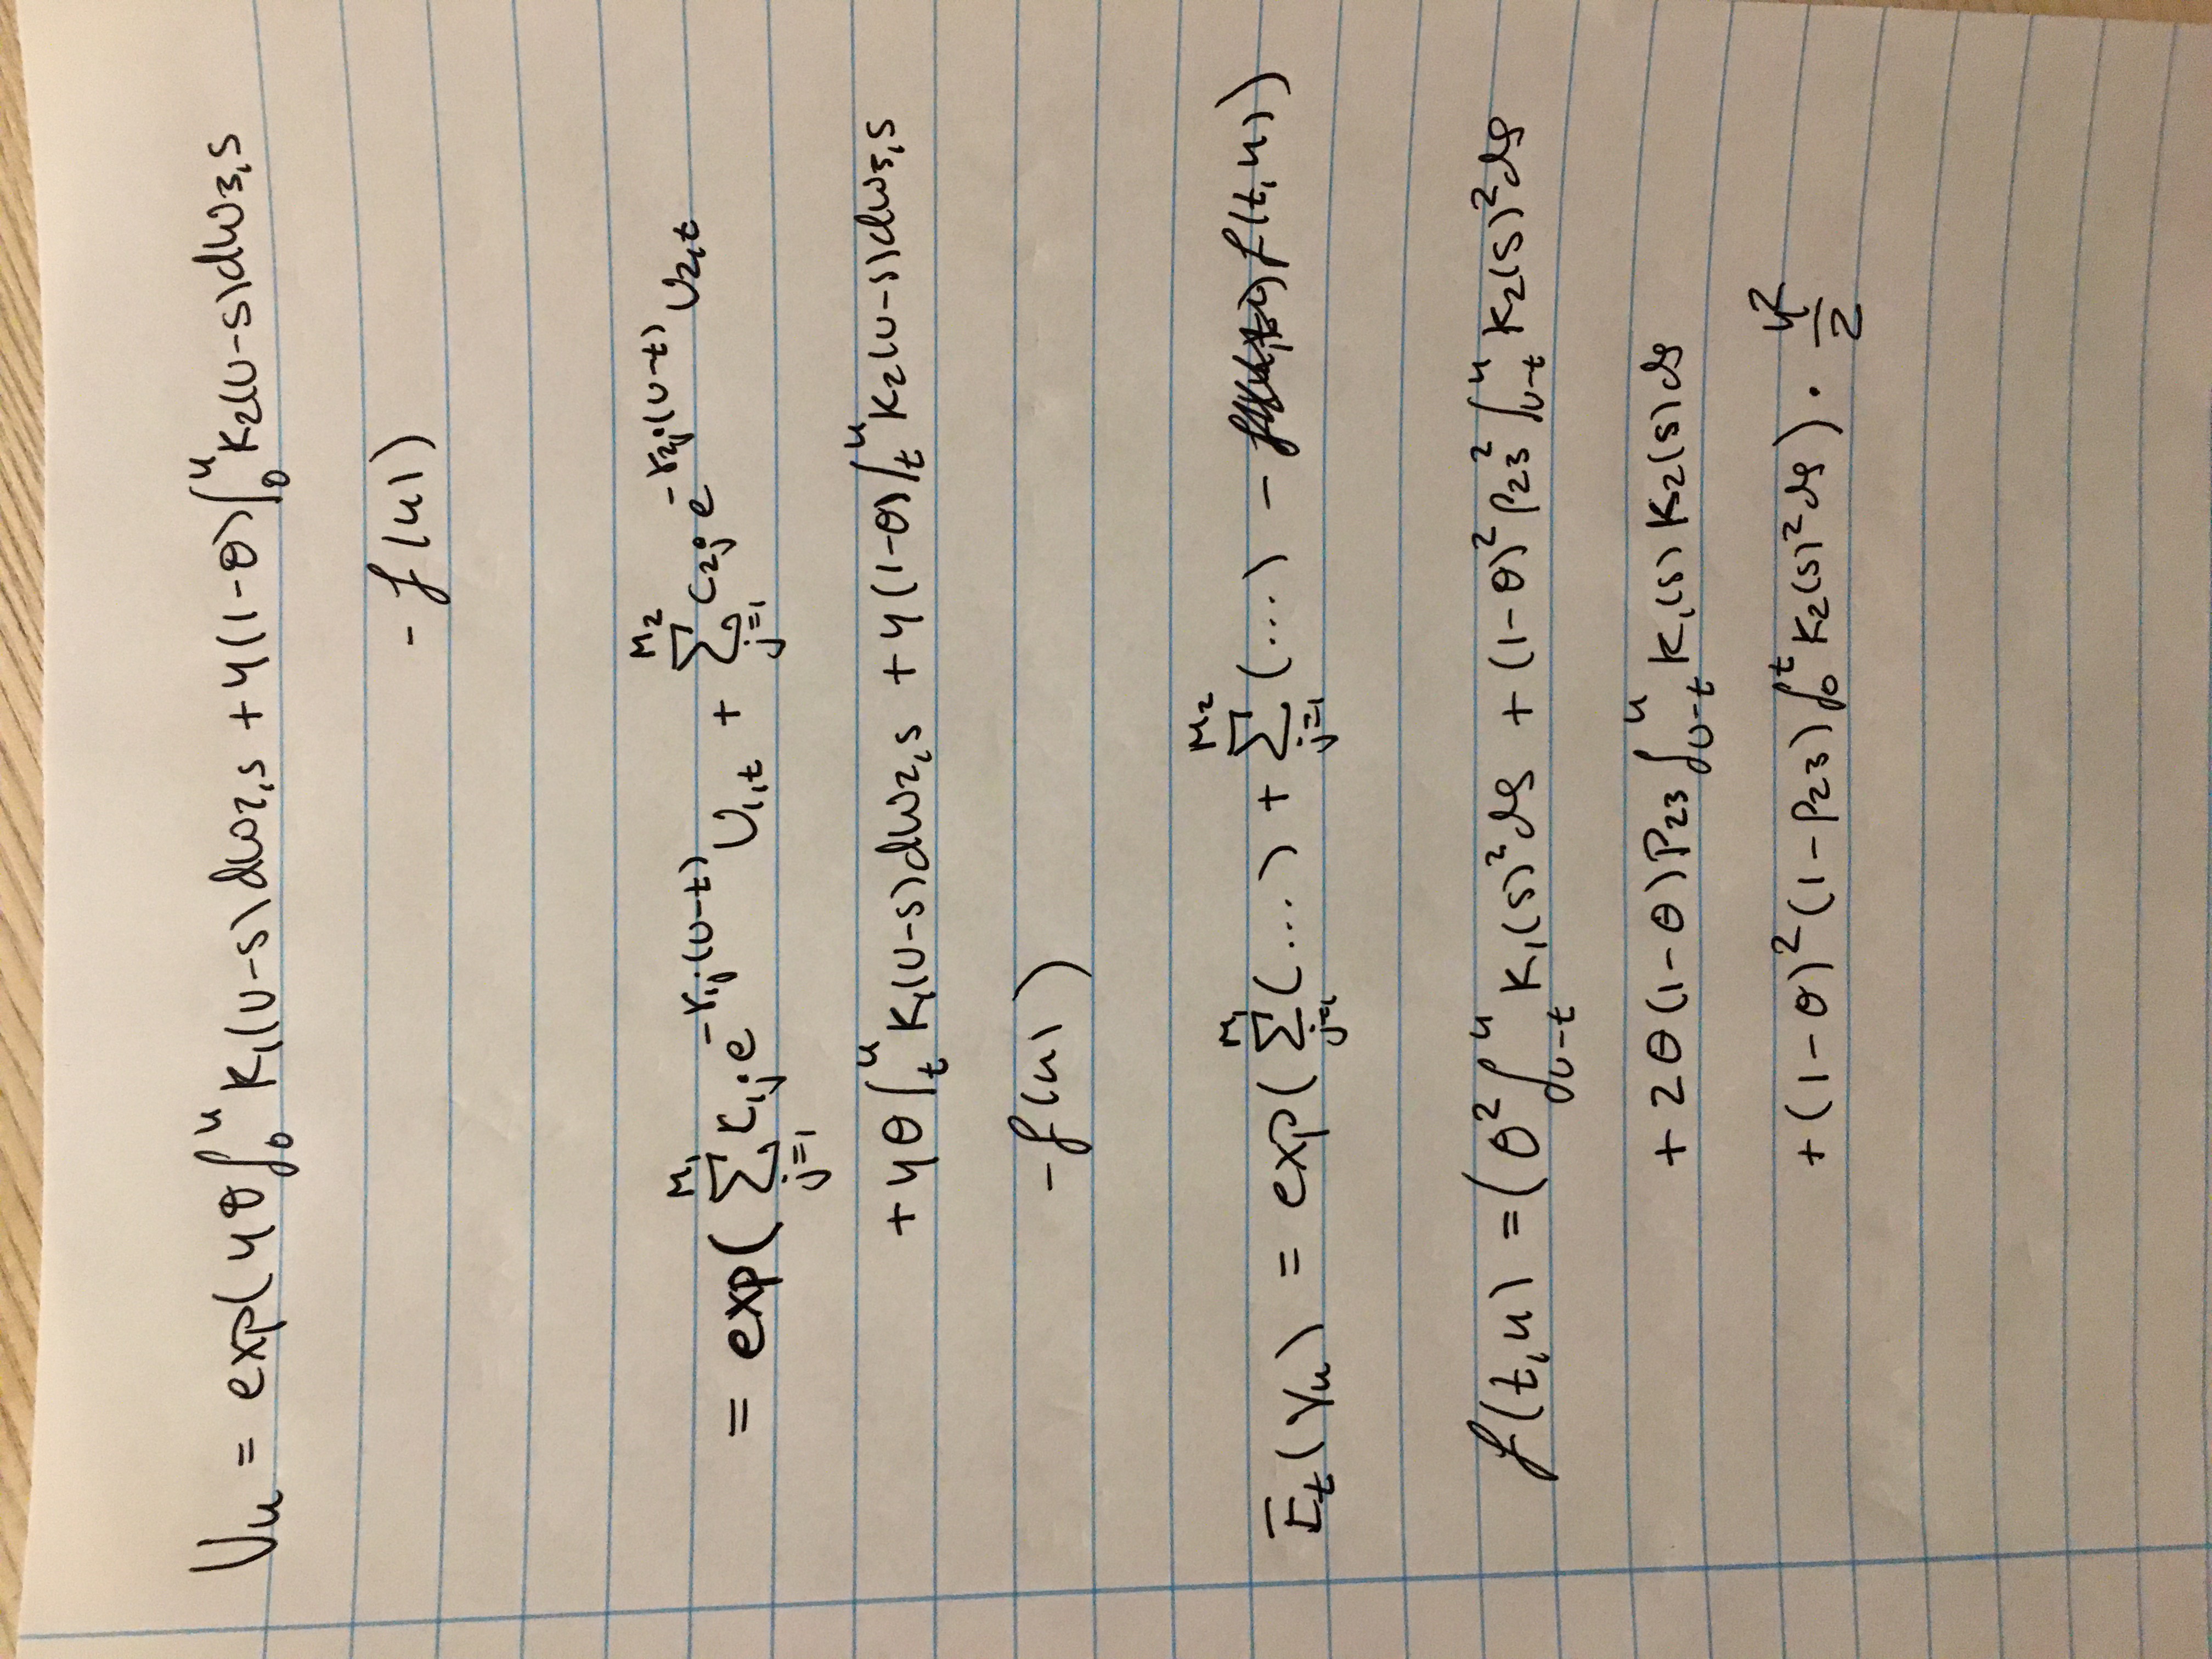 V_u = exp( η θ ∫_0^u K_1(u-s) dW_{2,s} + η(1-θ) ∫_0^u K_2(u-s) dW_{3,s}
- f(u) )
= exp( Σ_{j=1}^{M_1} c_{1j} e^{-γ_{1j}(u-t)} U_{1,t} + Σ_{j=1}^{M_2} c_{2j} e^{-γ_{2j}(u-t)} U_{2,t}
+ η θ ∫_t^u K_1(u-s) dW_{2,s} + η(1-θ) ∫_t^u K_2(u-s) dW_{3,s}
- f(u) )
E_t(V_u) = exp( Σ_{j=1}^{M_1} (...) + Σ_{j=1}^{M_2} (...) - f(t,u) )
f(t,u) = ( θ^2 ∫_{u-t}^u K_1(s)^2 ds + (1-θ)^2 ρ_{23}^2 ∫_{u-t}^u K_2(s)^2 ds
+ 2θ(1-θ) ρ_{23} ∫_{u-t}^u K_1(s) K_2(s) ds
+ (1-θ)^2 (1-ρ_{23}) ∫_0^t K_2(s)^2 ds ) · η^2/2